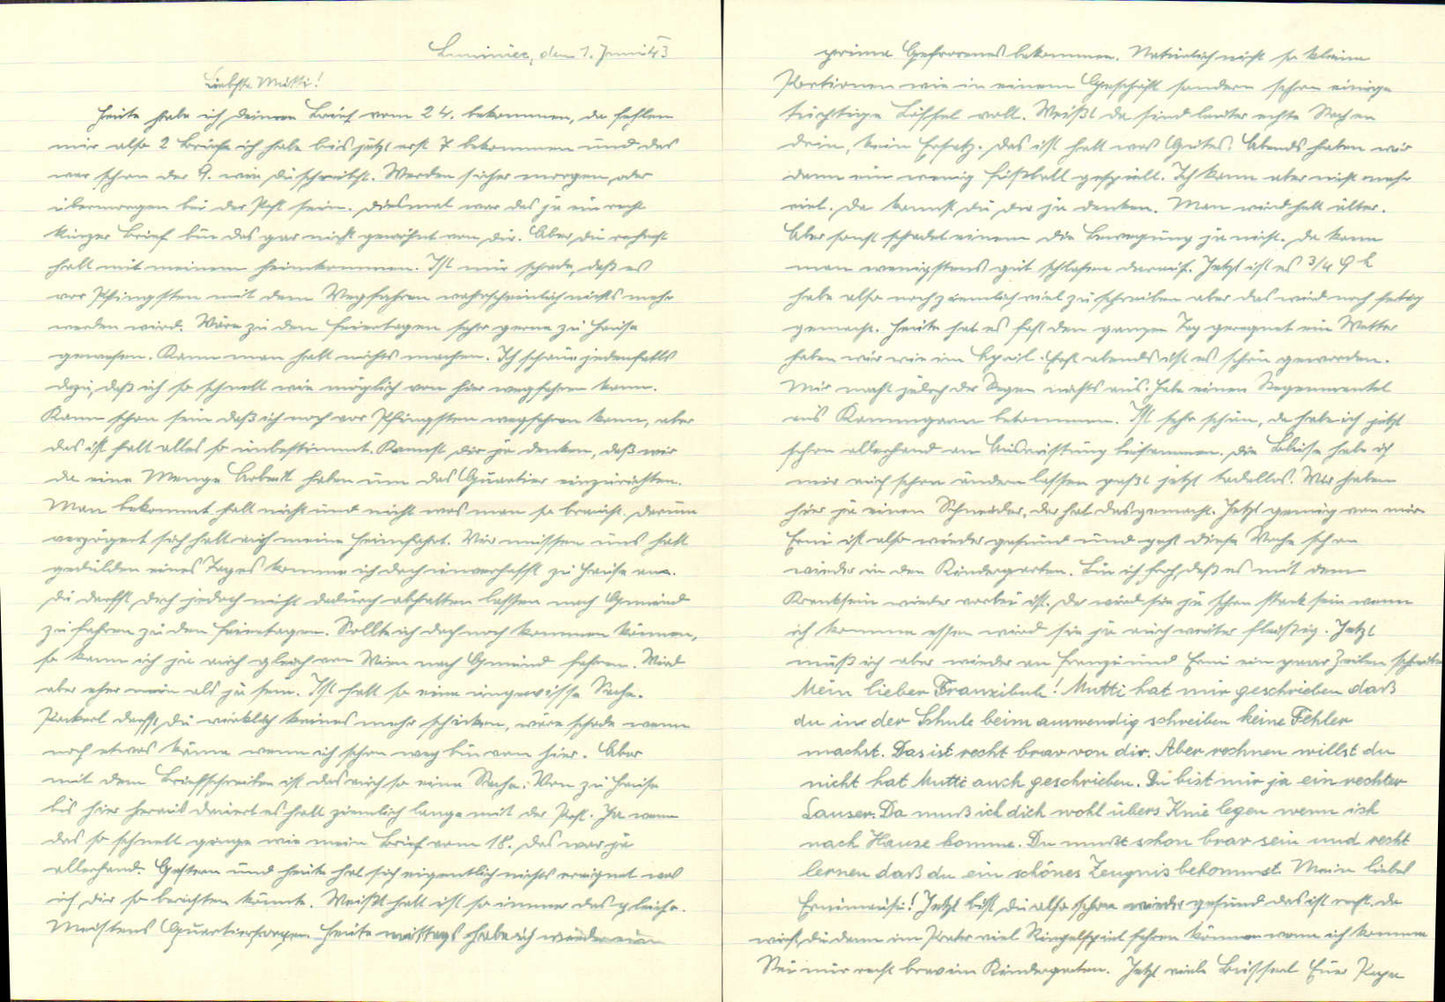 Luminiec, den 1. Juni 43
Liebste Mutti!
Heute habe ich deinen Brief vom 24. bekommen, da fehlen
mir also 2 Briefe ich habe bis jetzt erst 7 bekommen und das
war schon der 9. wie du schreibst. Werden sicher morgen oder
übermorgen bei der Post sein. Diesmal war das ja ein recht
kurzer Brief bin das gar nicht gewöhnt von dir. Aber du rechnest
halt mit meinem Heimkommen. Ist nur schade, daß es
vor Pfingsten mit dem Wegfahren wahrscheinlich nichts mehr
werden wird. Wäre zu den Feiertagen sehr gerne zu Hause
gewesen. Kann man halt nichts machen. Ich schaue jedenfalls
dazu, daß ich so schnell wie möglich von hier wegfahren kann.
Kann schon sein daß ich noch vor Pfingsten wegfahren kann, aber
das ist halt alles so unbestimmt. Kannst dir ja denken, daß wir
da eine Menge Arbeit haben um das Quartier einzurichten.
Man bekommt halt nicht und nicht was man so braucht, darum
verzögert sich halt auch meine Heimfahrt. Wir müssen uns halt
gedulden eines Tages komme ich doch unverhofft zu Hause an.
Du darfst dich jedoch nicht dadurch abhalten lassen nach Gmünd
zu fahren zu den Feiertagen. Sollte ich doch noch kommen können,
so kann ich ja auch gleich von Wien nach Gmünd fahren. Wird
aber eher nein als ja sein. Ist halt so eine ungewisse Sache.
Packerl darfst du wirklich keines mehr schicken, wäre schade wenn
noch etwas käme wenn ich schon weg bin von hier. Aber
mit dem Briefschreiben ist das auch so eine Sache: Von zu Hause
bis hier heraus dauert es halt ziemlich lange mit der Post. Ja wenn
das so schnell ginge wie mein Brief vom 18. das war ja
allerhand. Gestern und heute hat sich eigentlich nichts ereignet was
ich dir so berichten könnte. Weißt halt ist so immer das gleiche.
Meistens Quartiersorgen. Heute mittags habe ich wieder ein
prima Gefrorenes bekommen. Natürlich nicht so kleine
Portionen wie in einem Geschäft sondern schon einige
tüchtige Löffel voll. Weißt da sind lauter echte Sachen
drin, kein Ersatz. Das ist halt was Gutes. Abends haben wir
dann ein wenig Fußball gespielt. Ich kann aber nicht mehr
viel. Da kannst du dir ja denken. Man wird halt älter.
Aber sonst schadet einem die Bewegung ja nicht. Da kann
man wenigstens gut schlafen darauf. Jetzt ist es 3/4 9 h
habe also noch ziemlich viel zu schreiben aber das wird noch fertig
gemacht. Heute hat es fast den ganzen Tag geregnet ein Wetter
haben wir wie im April. Erst abends ist es schön geworden.
Mir macht jedoch der Regen nichts aus. Habe einen Regenmantel
aus Kammgarn bekommen. Ist sehr schön, da habe ich jetzt
schon allerhand an Ausrüstung beisammen. Die Bluse habe ich
mir auch schon ändern lassen paßt jetzt tadellos. Wir haben
hier ja einen Schneider, der hat das gemacht. Jetzt genug von mir
Erni ist also wieder gesund und geht diese Woche schon
wieder in den Kindergarten. Bin ich froh, daß es mit dem
Kranksein wieder vorbei ist. Da wird sie ja schon stark sein wenn
ich komme essen wird sie ja auch weiter fleißig. Jetzt
muß ich aber wieder an Franzi und Erni ein paar Zeilen schreiben
Mein lieber Franzibub! Mutti hat mir geschrieben daß
du in der Schule beim auswendig schreiben keine Fehler
machst. Das ist recht brav von dir. Aber rechnen willst du
nicht hat Mutti auch geschrieben. Du bist mir ja ein rechter
Lauser. Da muß ich dich wohl übers Knie legen wenn ich
nach Hause komme. Du must schon brav sein und recht
lernen daß du ein schönes Zeugnis bekommst. Mein liebes
Ernimausi! Jetzt bist du also schon wieder gesund das ist recht. da
wirst du dann im Prater viel Ringelspiel fahren können wenn ich komme
Sei nur recht brav im Kindergarten. Jetzt viele Busserl Euer Papa